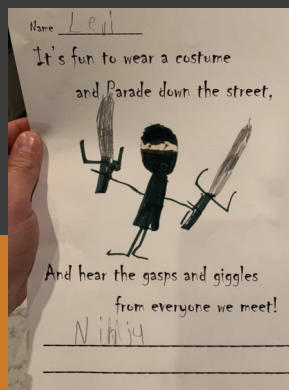 Name Levi
It's fun to wear a costume
and Parade down the street,
And hear the gasps and giggles
from everyone we meet!
Ninju